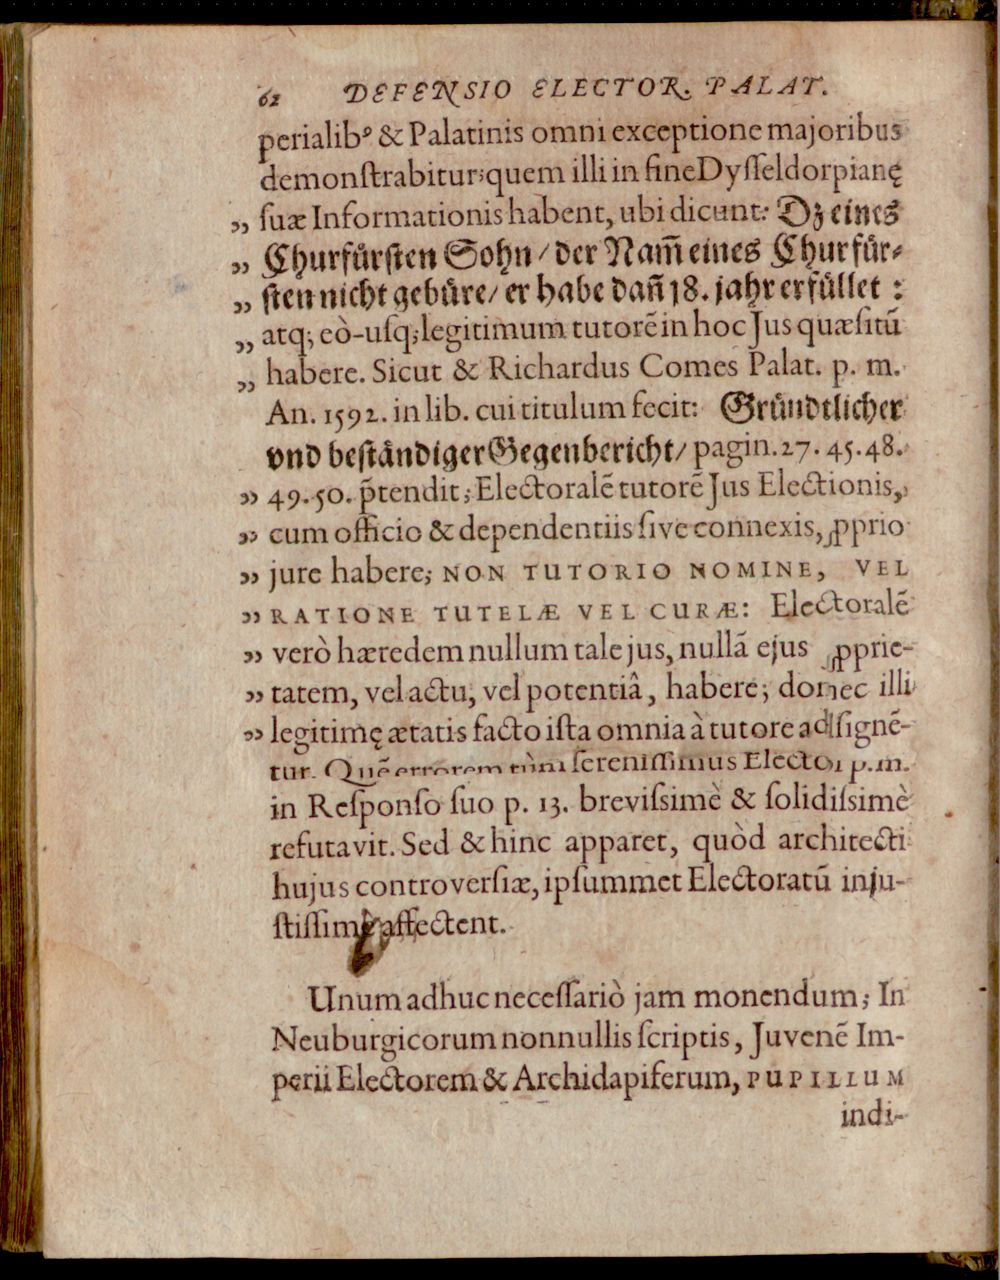 62 DEFENSIO ELECTOR. PALAT.
perialibꝰ & Palatinis omni exceptione majoribus
demonſtrabitur; quem illi in fine Dyſſeldorpianę
„ ſuæ Informationis habent, ubi dicunt: Dz eines
„ Churfürſten Sohn / der Nam̃ eines Churfür-
„ ſten nicht gebüre / er habe dañ 18. jahr erfüllet :
„ atq; eò-uſq; legitimum tutorẽ in hoc Jus quæſitũ
„ habere. Sicut & Richardus Comes Palat. p. m.
An. 1592. in lib. cui titulum fecit: Gründtlicher
vnd beſtändiger Gegenbericht / pagin. 27. 45. 48.
„ 49. 50. p̃tendit; Electoralẽ tutorẽ Jus Electionis,
„ cum officio & dependentiis ſive connexis, ꝓprio
„ jure habere; NON TUTORIO NOMINE, VEL
„ RATIONE TUTELÆ VEL CURÆ: Electoralẽ
„ verò hæredem nullum tale jus, nullã ejus ꝓprie-
„ tatem, vel actu, vel potentiâ, habere; donec illi
„ legitimę ætatis facto iſta omnia à tutore adſignẽ-
tur. Quẽ errorem tùm ſereniſſimus Elector p. m.
in Reſponſo ſuo p. 13. breviſsimè & ſolidiſsimè
refutavit. Sed & hinc apparet, quòd architecti
hujus controverſiæ, ipſummet Electoratũ inju-
ſtiſſimè affectent.
Unum adhuc neceſſariò jam monendum; In
Neuburgicorum nonnullis ſcriptis, Juvenẽ Im-
perii Electorem & Archidapiferum, PUPILLUM
indi-